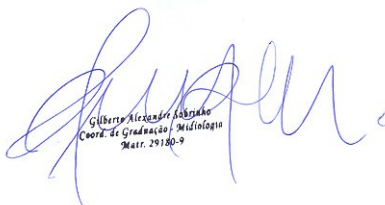 Gilberto Alexandre Sobrinho
Coord. de Graduação - Midiologia
Matr. 29180-9